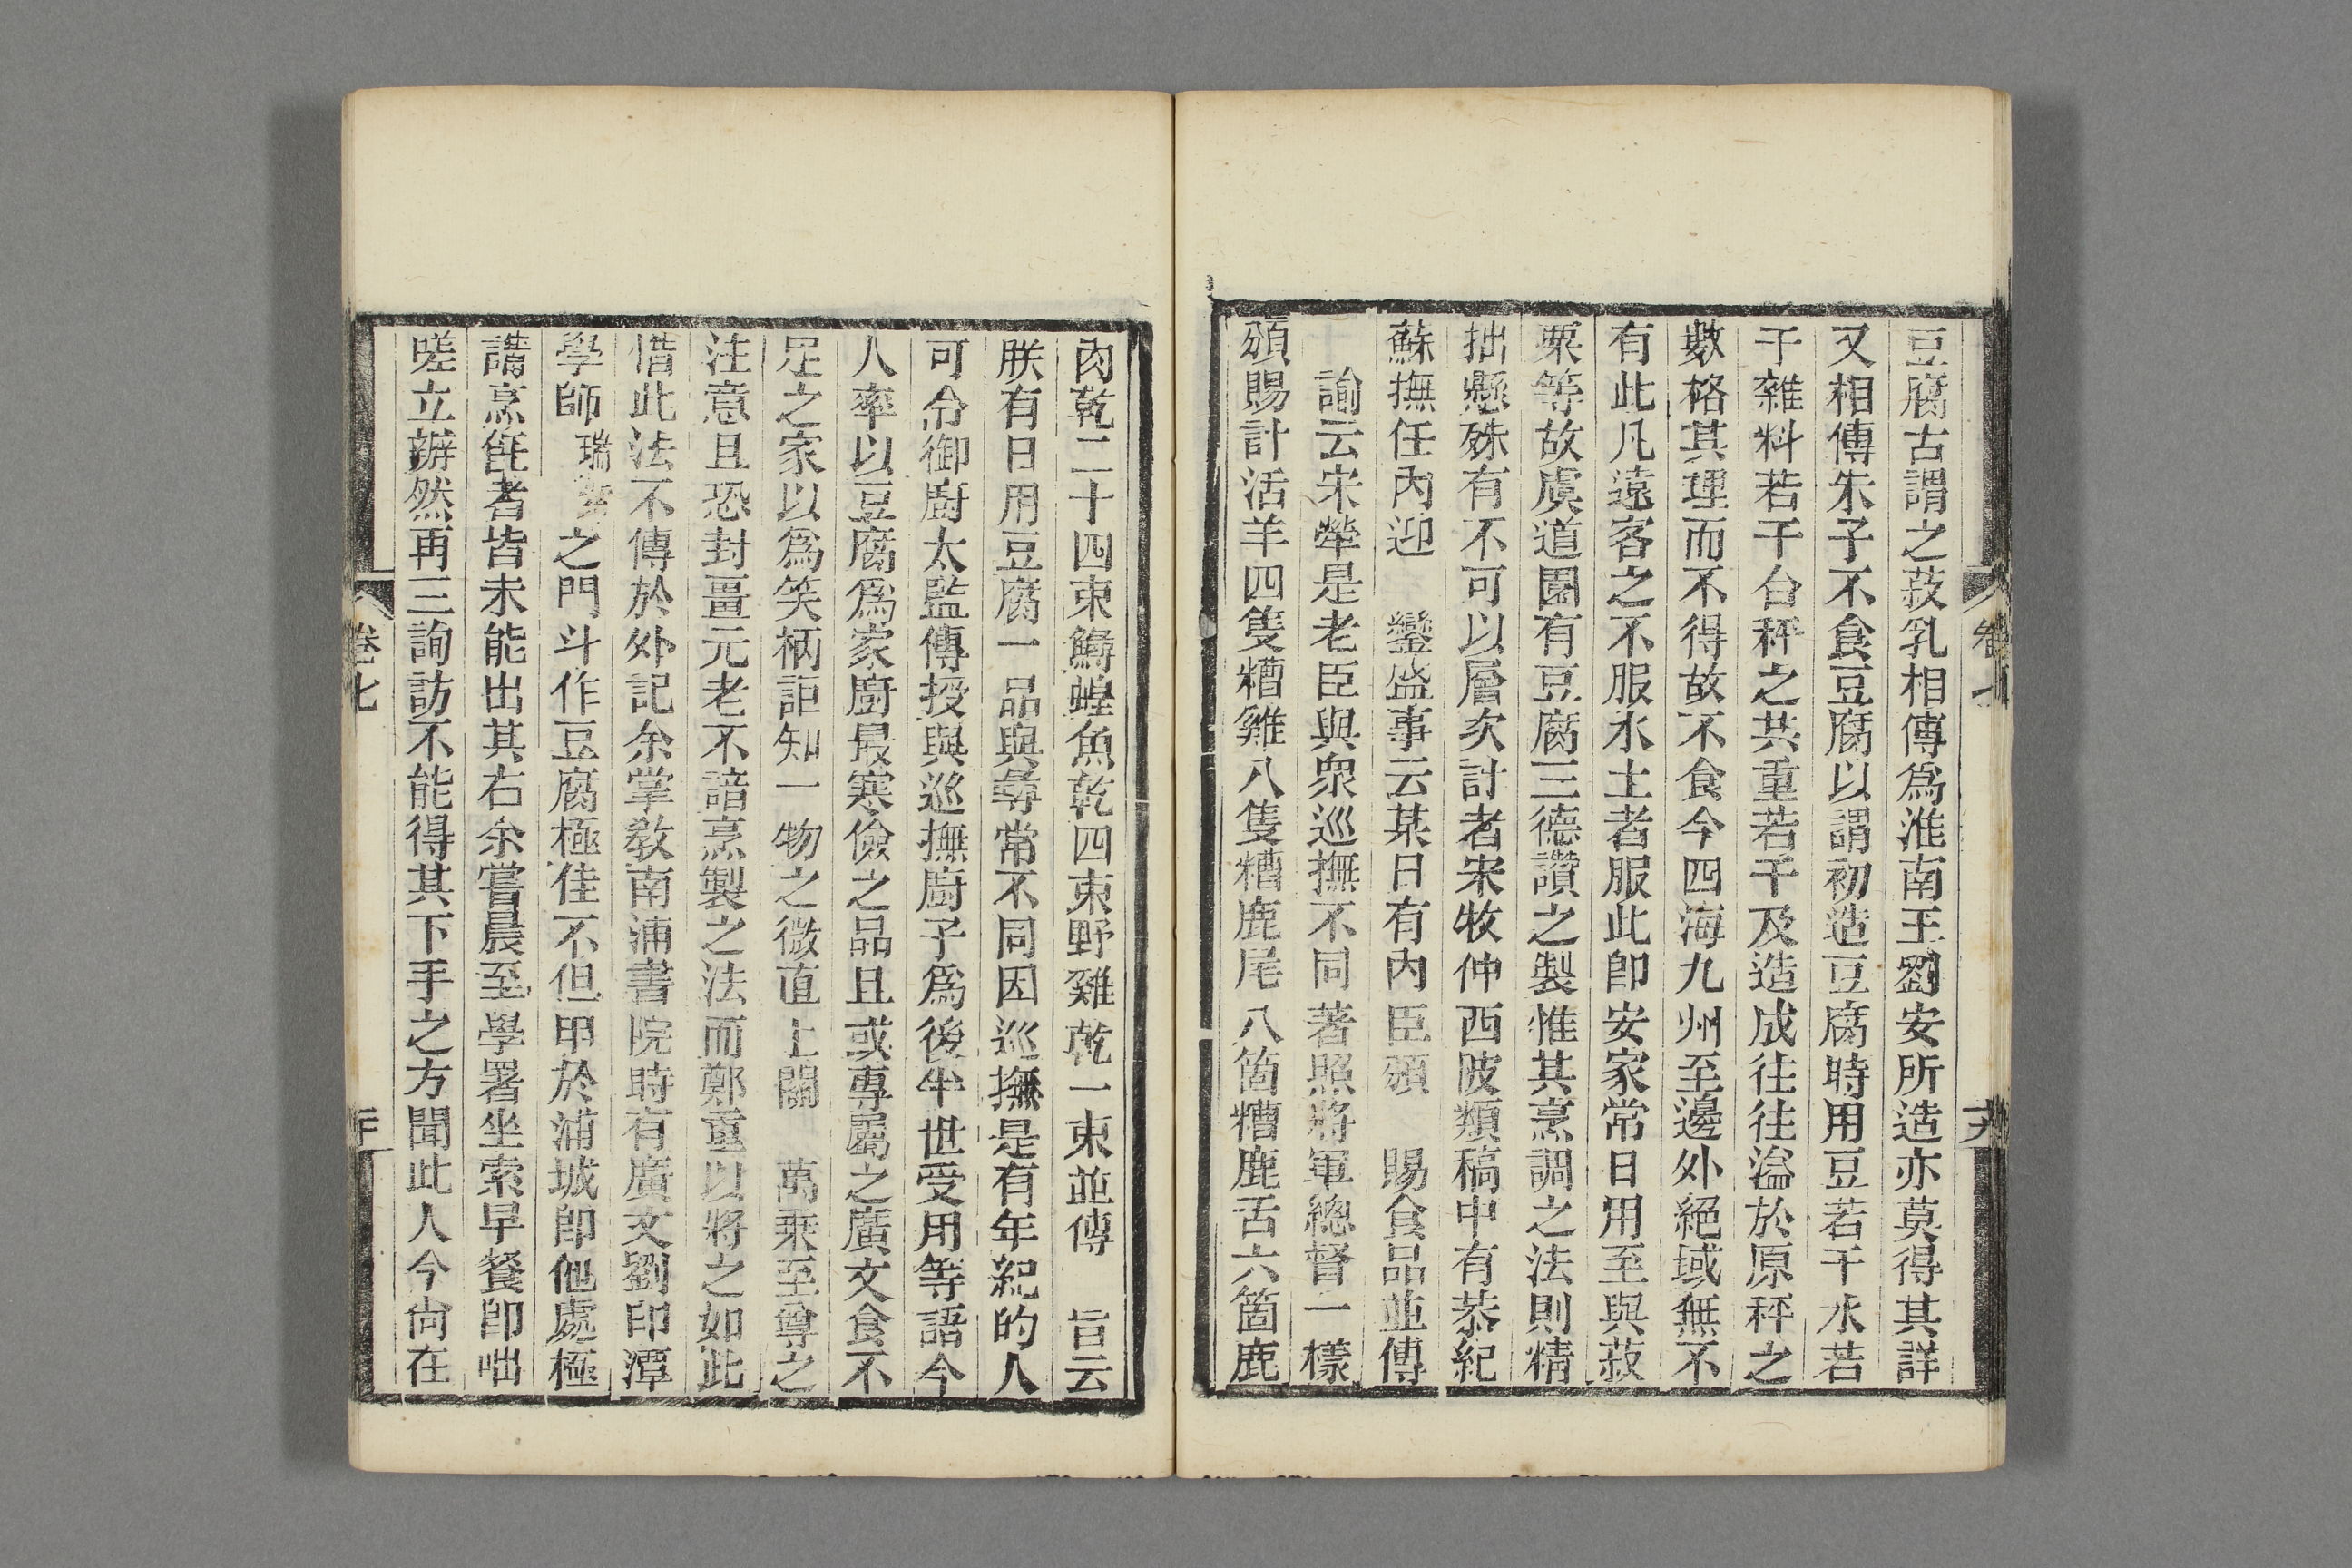 豆腐古謂之菽乳相傳爲淮南王劉安所造亦莫得其詳
又相傳朱子不食豆腐以謂初造豆腐時用豆若干水若
干雜料若干合秤之共重若干及造成往往溢於原秤之
數格其理而不得故不食今四海九州至邊外絕域無不
有此凡遠客之不服水土者服此卽安家常日用至與菽
粟等故虞道園有豆腐三德讚之製惟其烹調之法則精
拙懸殊有不可以層次計者宋牧仲西陂類稿中有恭紀
蘇撫任內迎 鑾盛事云某日有內臣頒 賜食品並傳
諭云宋犖是老臣與衆巡撫不同著照將軍總督一樣
頒賜計活羊四隻糟雞八隻糟鹿尾八箇糟鹿舌六箇鹿
肉乾二十四束鱘鰉魚乾四束野雞乾一束並傳 旨云
朕有日用豆腐一品與尋常不同因巡撫是有年紀的人
可令御廚太監傳授與巡撫廚子爲後半世受用等語今
人率以豆腐爲家廚最寒儉之品且或專屬之廣文食不
足之家以爲笑柄詎知一物之微直上關 萬乘至尊之
注意且恐封疆元老不諳烹製之法而鄭重以將之如此
惜此法不傳於外記余掌教南浦書院時有廣文劉印潭
學師瑞紫之門斗作豆腐極佳不但甲於浦城卽他處極
講烹飪者皆未能出其右余嘗晨至學署坐索早餐卽咄
嗟立辦然再三詢訪不能得其下手之方聞此人今尙在
卷七
卷七